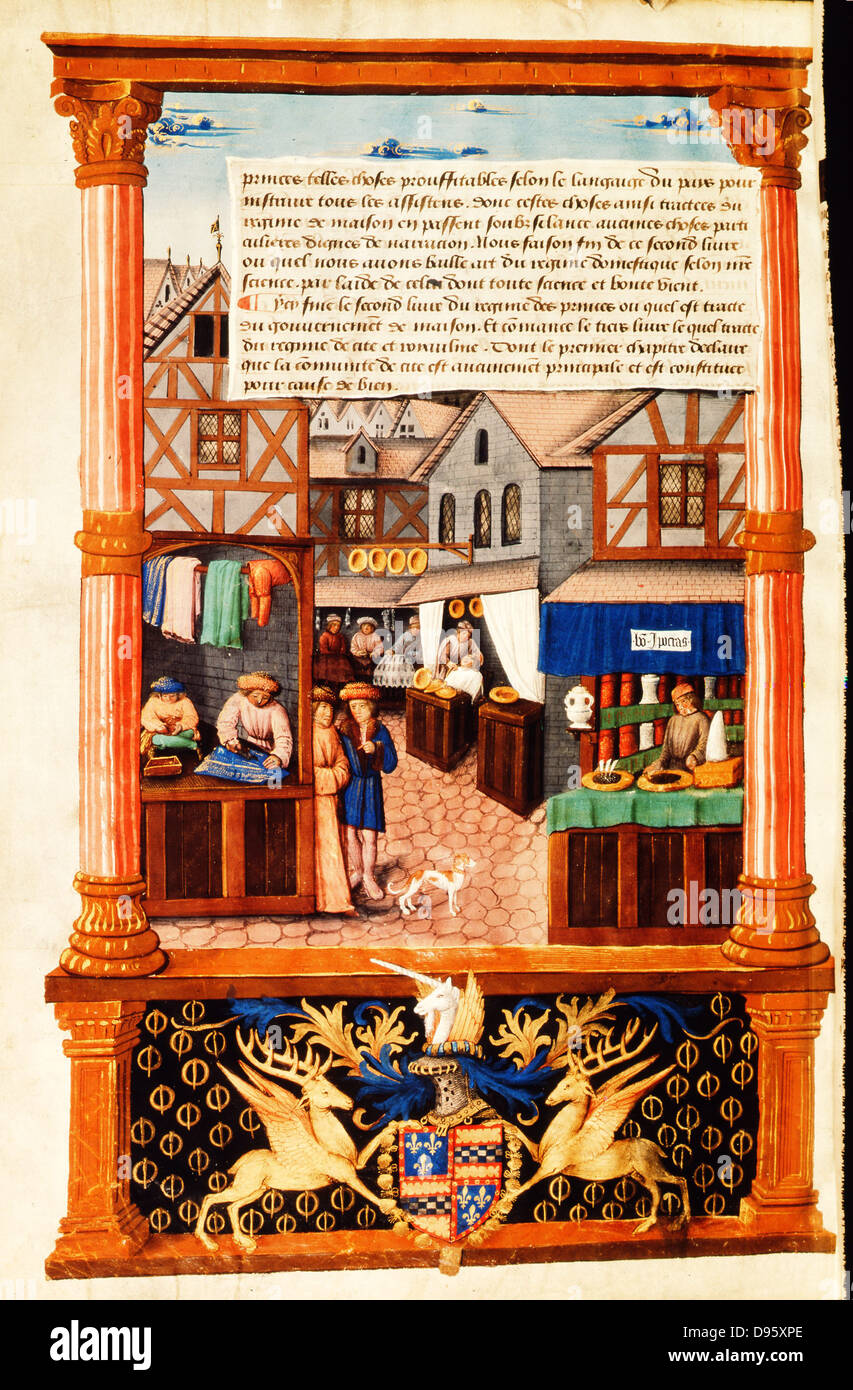 princes telles choses prouffitables selon le langaige du pays pour
instruire tous les assistens. donc cestes choses ainsi tractees du
regime de maison en passent soubz silance aucunes choses parti
culieres dignes de narracion. Nous faison fin de ce second livre
ou quel nous avons baille art du regime domestique selon nre
science. par laide de celui dont toute science et bonte vient.
Cy finie le second livre du regime des princes ou quel est tracte
du gouvernemēt de maison. Et cōmance le tiers livre le quel tracte
du regime de cite et royaulme. Dont le premier chapitre declaire
que la cōmunite de cite est aucunement principale et est constituee
pour cause de bien.
bō Ipocras
alamy
Image ID: D95XPE
www.alamy.com